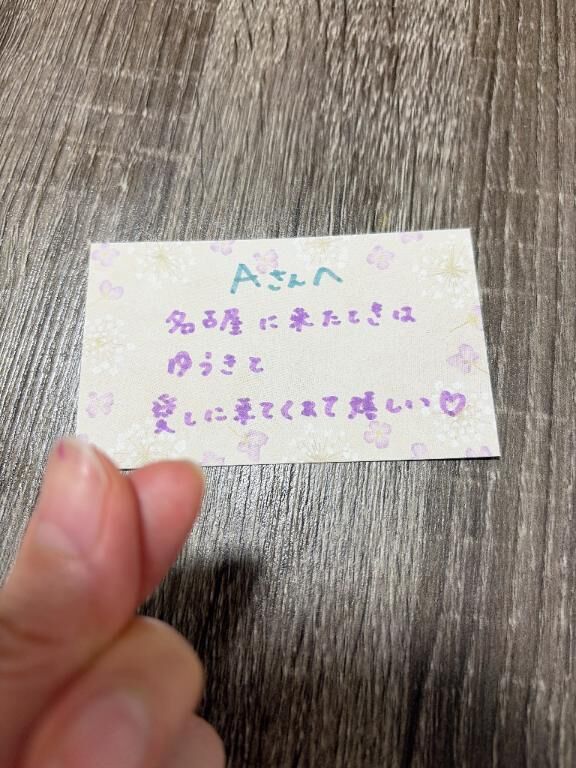 Aさんへ
名古屋に来たときは
ゆうきて
愛しに来てくれて嬉しい♡